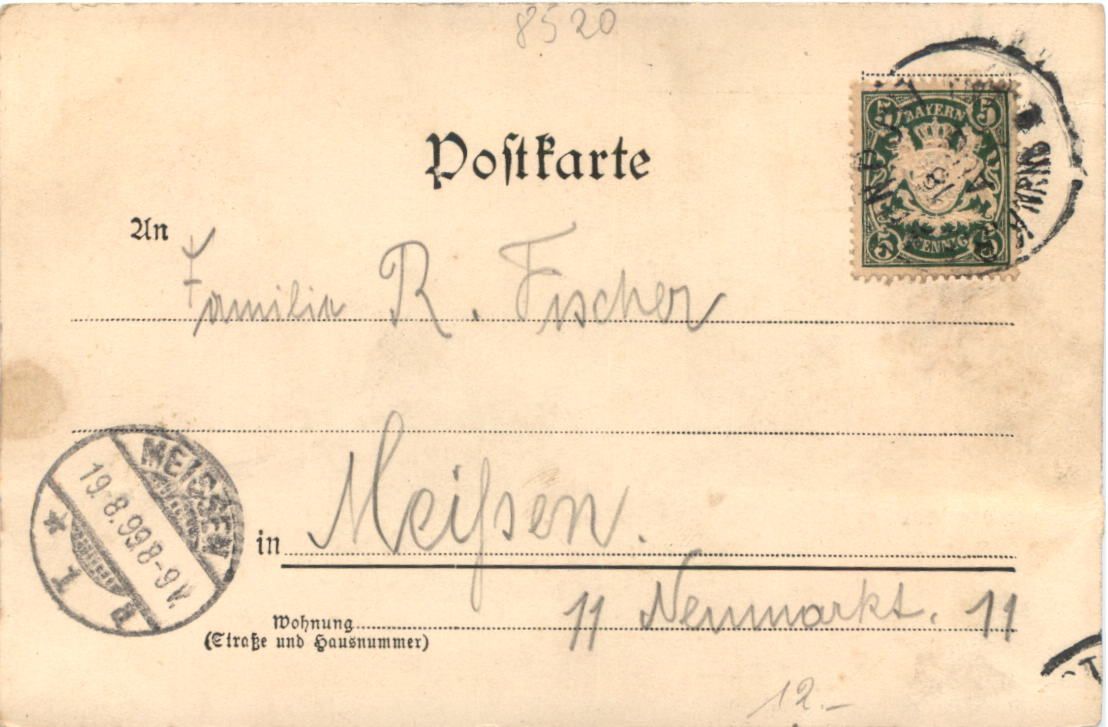 8520
Postkarte
BAYERN
5 5
5 PFENNIG 5
An
Familie R. Fischer
MEISSEN
19.8.99.8-9V.
* 1
in Meißen.
Wohnung
(Straße und Hausnummer)
11 Neumarkt. 11
12.-